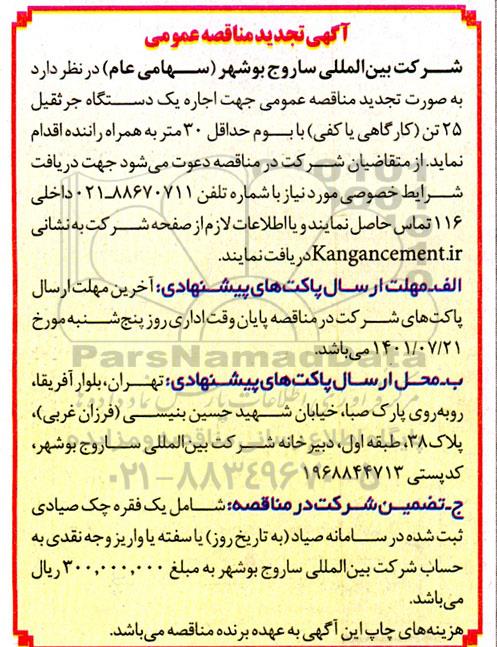 آگهی تجدید مناقصه عمومی
شرکت بین‌المللی ساروج بوشهر (سهامی عام) در نظر دارد
به صورت تجدید مناقصه عمومی جهت اجاره یک دستگاه جرثقیل
۲۵ تن (کارگاهی یا کفی) با بوم حداقل ۳۰ متر به همراه راننده اقدام
نماید. از متقاضیان شرکت در مناقصه دعوت می‌شود جهت دریافت
شرایط خصوصی مورد نیاز با شماره تلفن ۸۸۶۷۰۷۱۱-۰۲۱ داخلی
۱۱۶ تماس حاصل نمایند و یا اطلاعات لازم از صفحه شرکت به نشانی
Kangancement.ir دریافت نمایند.
الف-مهلت ارسال پاکت‌های پیشنهادی: آخرین مهلت ارسال
پاکت‌های شرکت در مناقصه پایان وقت اداری روز پنج‌شنبه مورخ
۱۴۰۱/۰۷/۲۱ می‌باشد.
ParsNamadData
ب-محل ارسال پاکت‌های پیشنهادی: تهران، بلوار آفریقا،
روبه‌روی پارک صبا، خیابان شهید حسین بنیسی (فرزان غربی)،
پلاک ۳۸، طبقه اول، دبیرخانه شرکت بین‌المللی ساروج بوشهر،
کدپستی ۱۹۶۸۸۴۴۷۱۳
۰۲۱-۸۸۳۴۹۶۷۰-۵
ج-تضمین شرکت در مناقصه: شامل یک فقره چک صیادی
ثبت شده در سامانه صیاد (به تاریخ روز) یا سفته یا واریز وجه نقدی به
حساب شرکت بین‌المللی ساروج بوشهر به مبلغ ۳۰۰,۰۰۰,۰۰۰ ریال
می‌باشد.
هزینه‌های چاپ این آگهی به عهده برنده مناقصه می‌باشد.